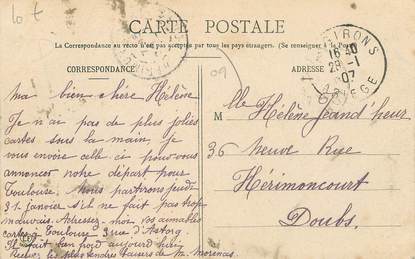 10 f
CARTE POSTALE
La Correspondance au recto n'est pas acceptée par tous les pays étrangers. (Se renseigner à la Poste)
CORRESPONDANCE
ADRESSE
GIRONS
16 40
29 -1
07
ARIEGE
09
Ma bien chère Hélène
Je n'ai pas de plus jolies
cartes sous la main, je
vous envoie celle ci pour vous
annoncer notre départ pour
Toulouse. Nous partirons jeudi
31 janvier s'il ne fait pas trop
mauvais. Adressez-moi vos aimables
cartes à Toulouse 3 rue d'Astorg
Il fait bien froid aujourd'hui
Recevez les plus tendres baisers de M. Morenas
Mlle Hélène Jeand'heur
36 Neuve Rue
Hérimoncourt
Doubs.